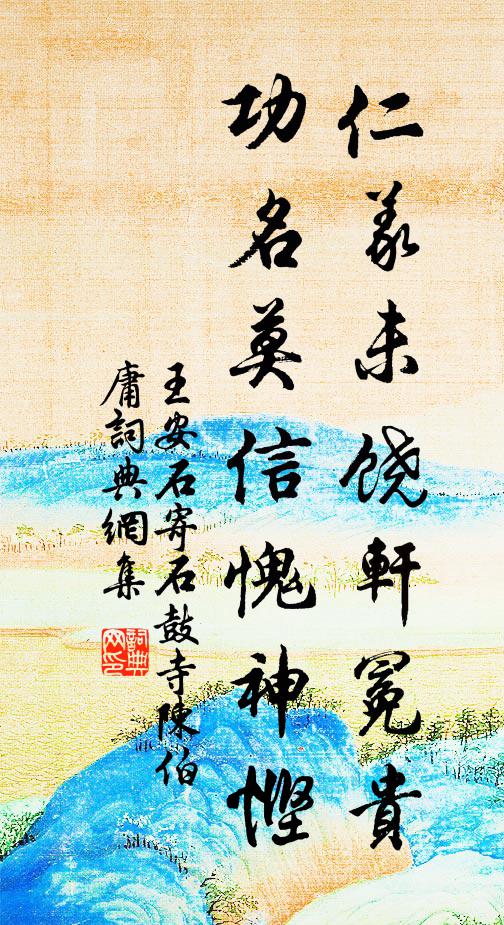 仁義未饶軒冕貴
功名莫信愧神慳
王安石寄石鼓寺陳伯
庸詞典網集
詞典网印